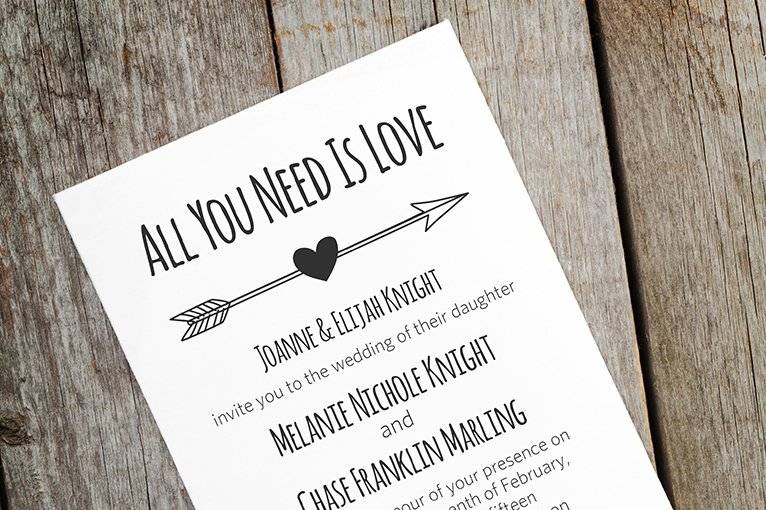 ALL YOU NEED IS LOVE
JOANNE & ELIJAH KNIGHT
invite you to the wedding of their daughter
MELANIE NICHOLE KNIGHT
and
CHASE FRANKLIN MARLING
of your presence on
of February,
on